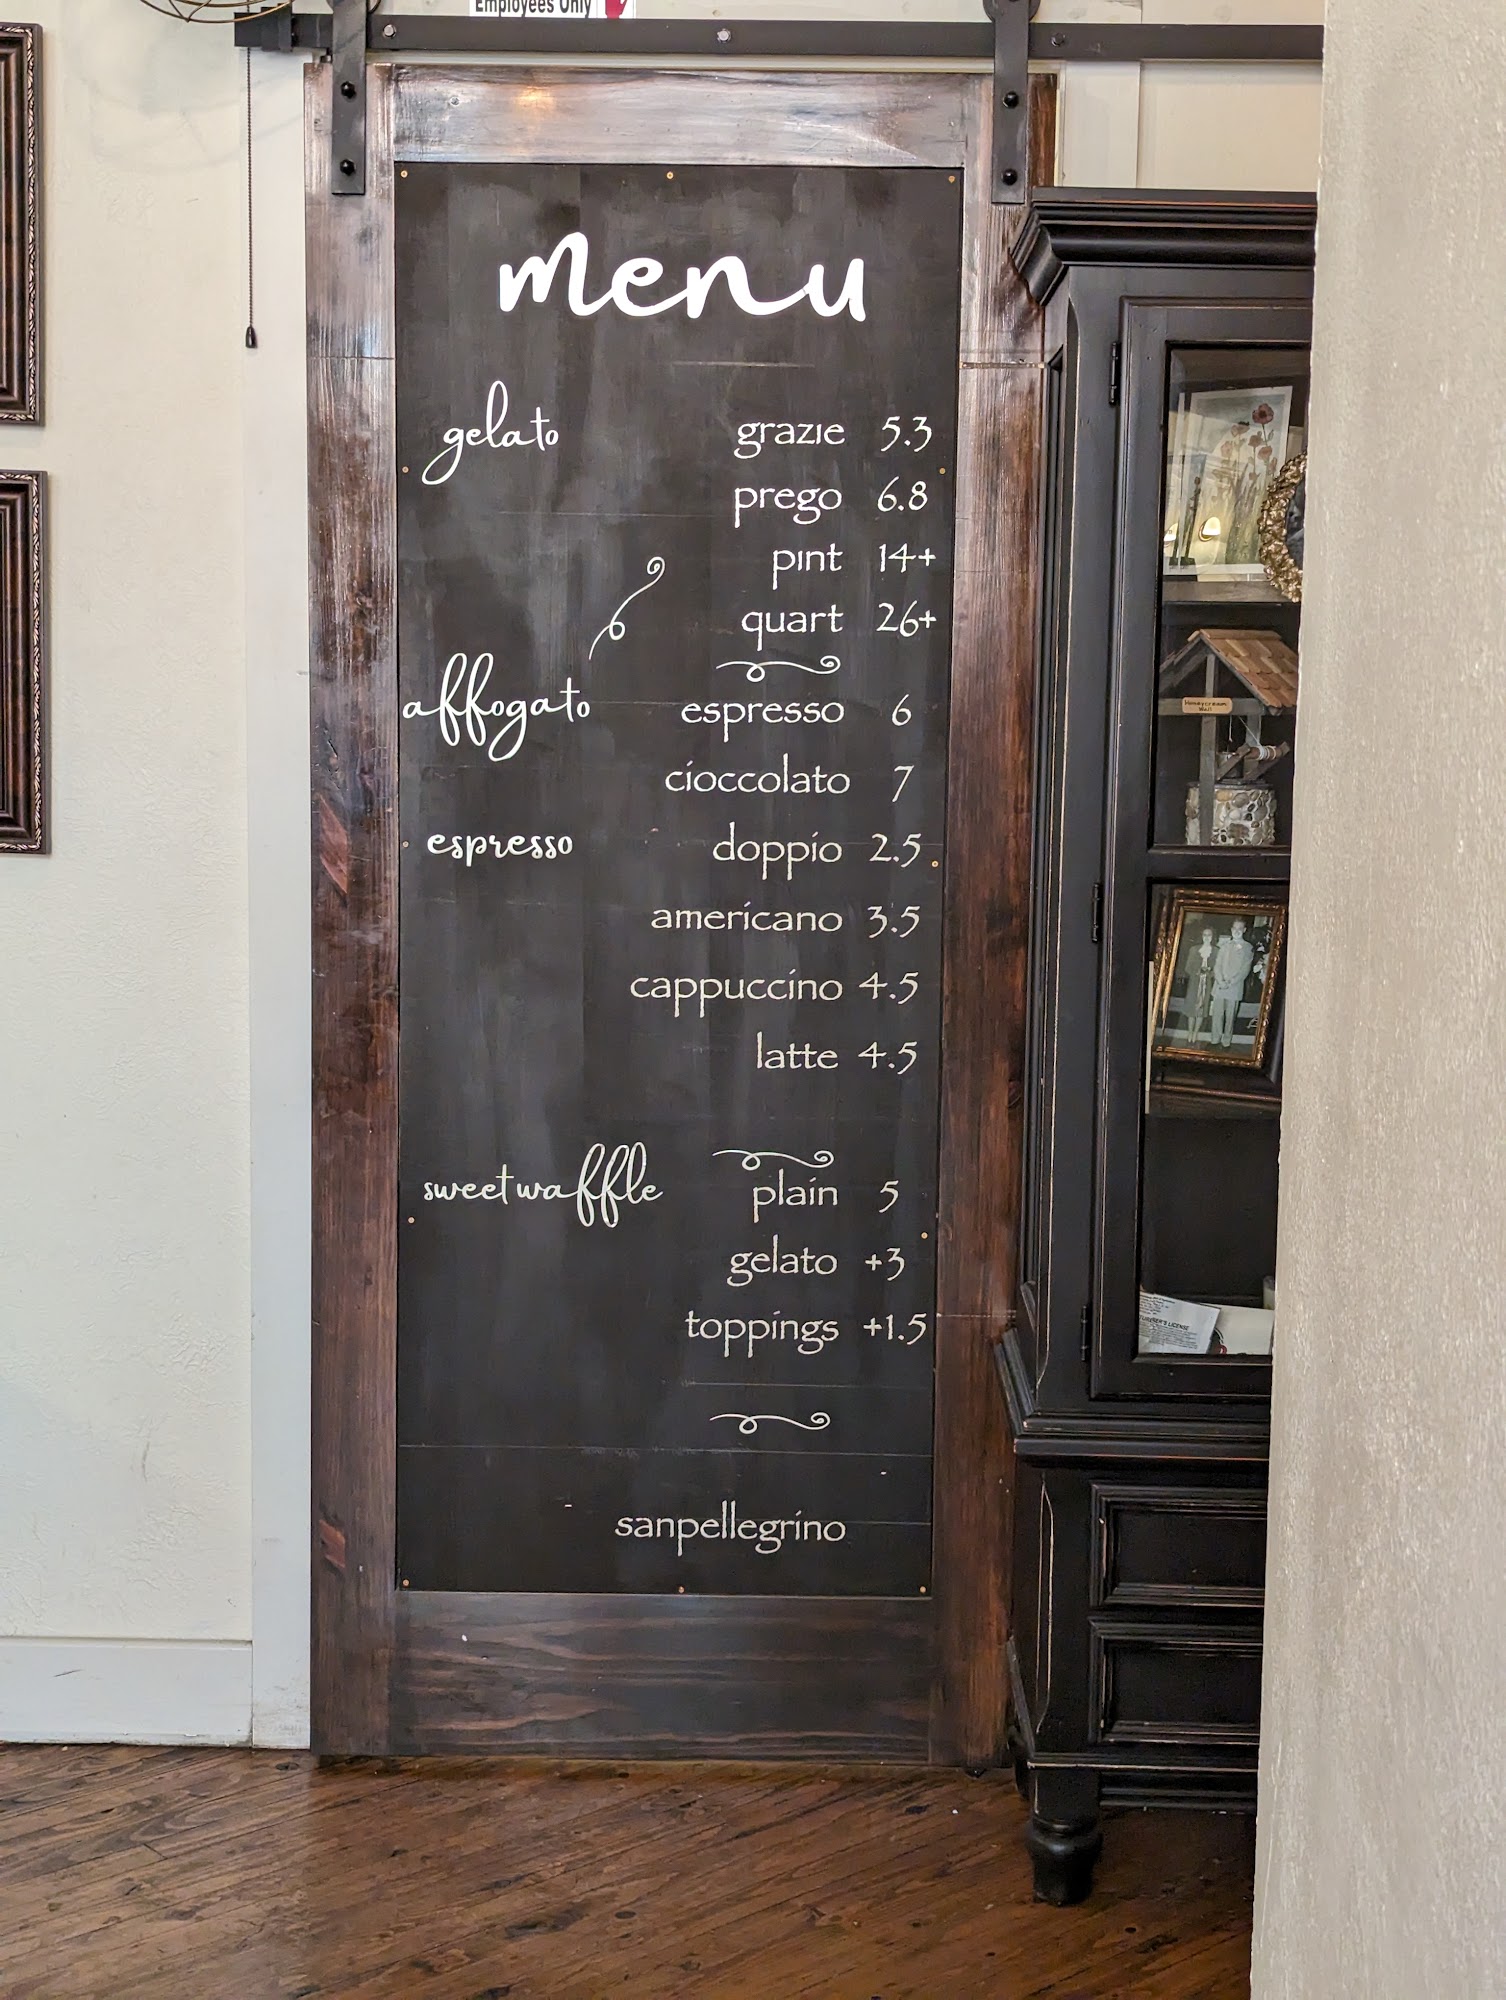 Employees Only
menu
gelato grazie 5.3
prego 6.8
pint 14+
quart 26+
affogato espresso 6
cioccolato 7
espresso doppio 2.5
americano 3.5
cappuccino 4.5
latte 4.5
sweet waffle plain 5
gelato +3
toppings +1.5
sanpellegrino
Honeycream
Well
LICENSE